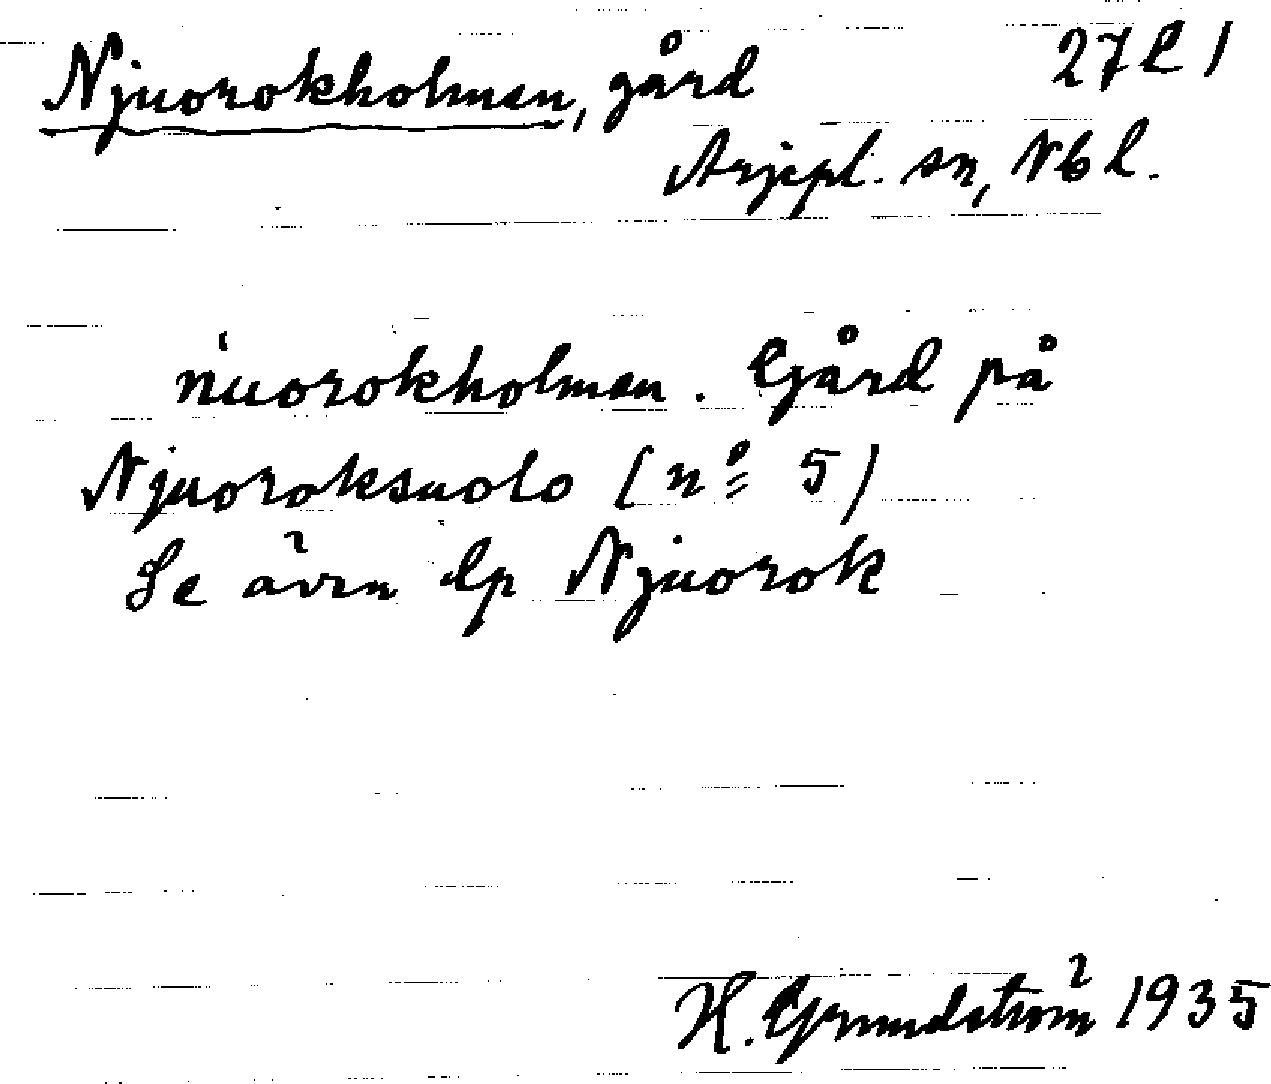 Njuorokholmen, gård 27 l 1
Arjepl. sn, Nbl.
ńuorokholmen. Gård på
Njuoroksuolo (nº 5)
Se även lp Njuorok
H. Grundström 1935